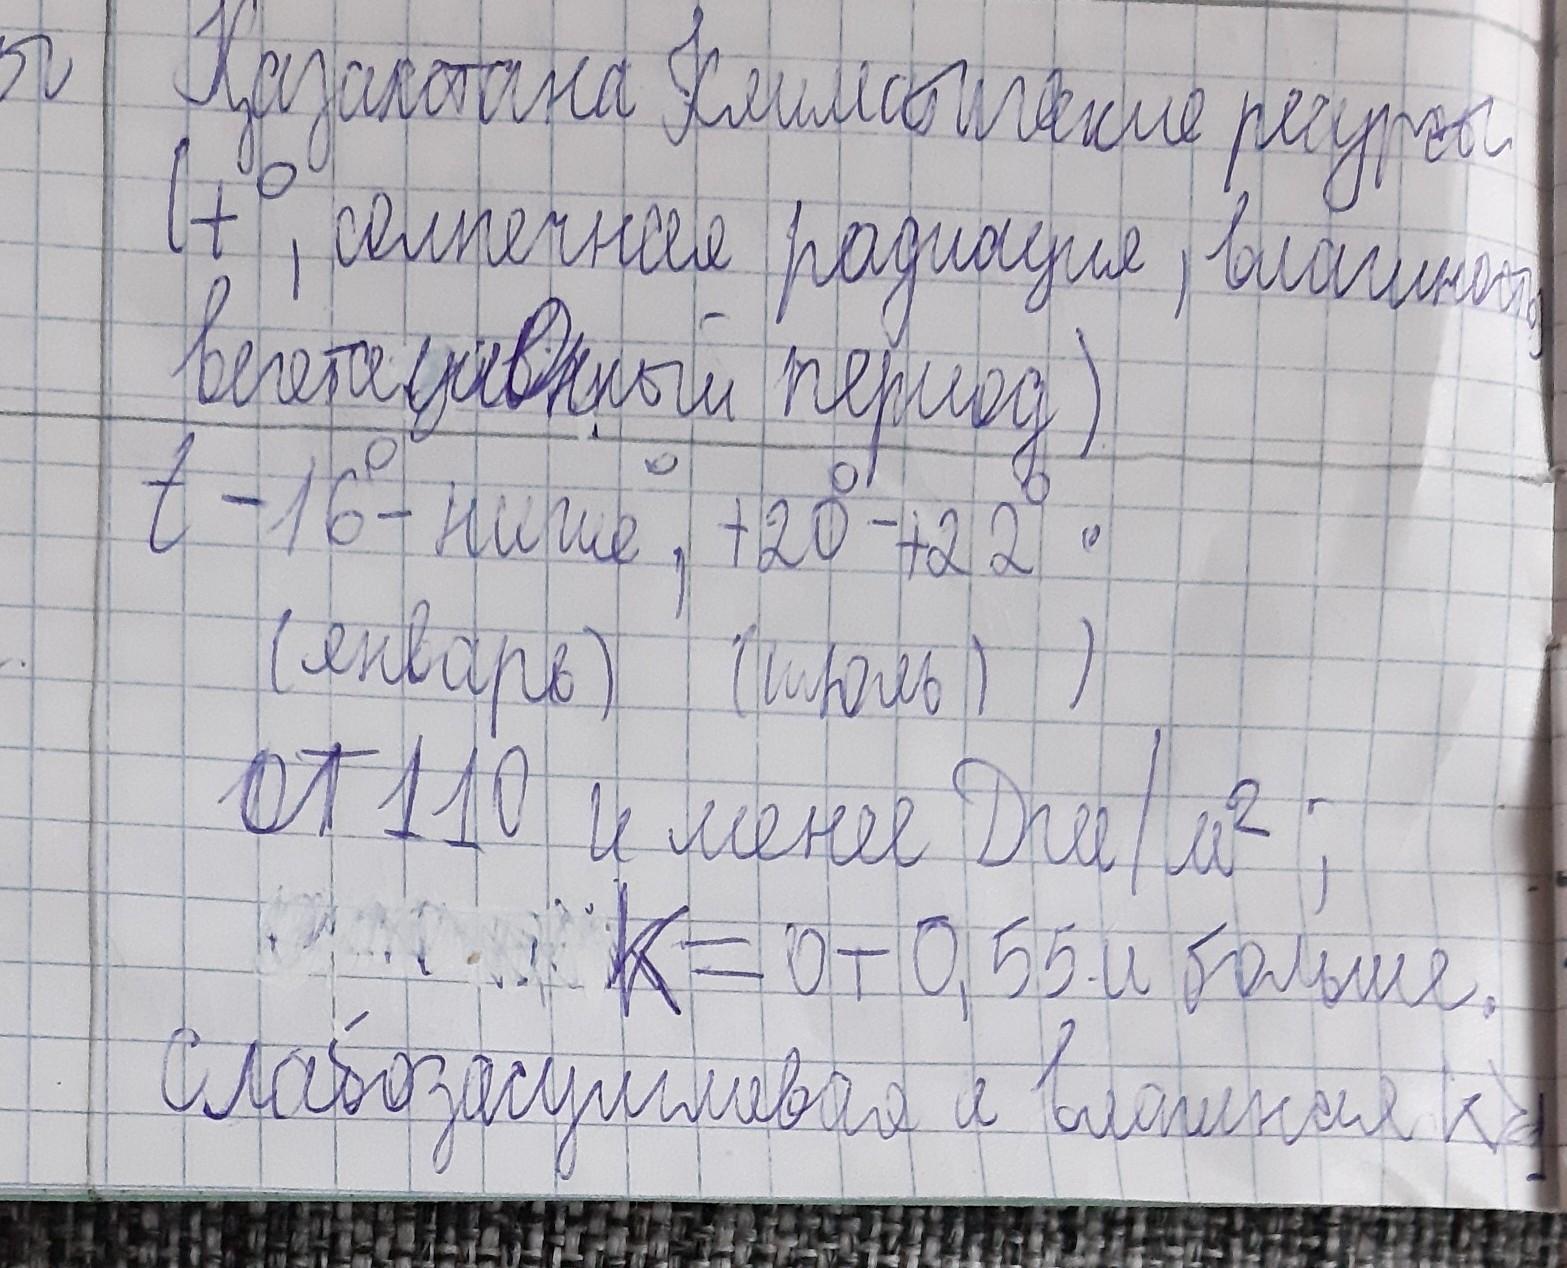 Казахстана Климатические ресурсы
(t°, солнечная радиация, влажность
вегетационный период)
t -16° - ниже, +20° - +22°
(январь) (июль) )
от 110 и менее Дж/м² ;
K = от 0,55 и больше.
Слабозасушливая и влажная K